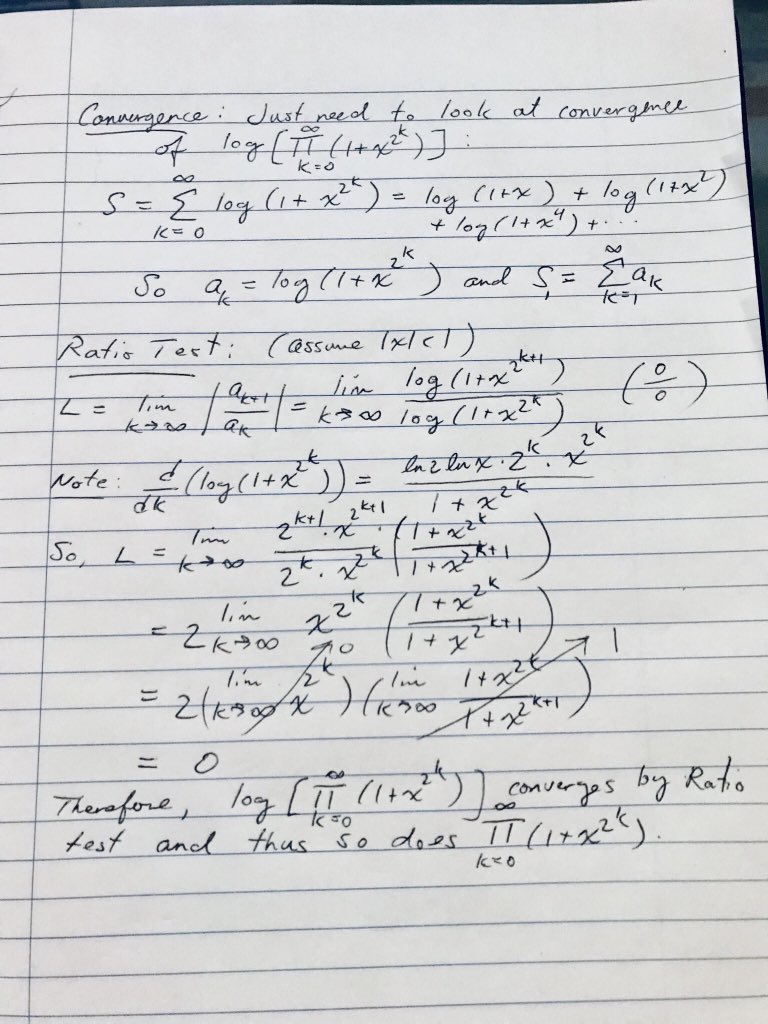 Convergence: Just need to look at convergence
of log[∏_{k=0}^{∞}(1+x^{2^k})]:
S = ∑_{k=0}^{∞} log(1+x^{2^k}) = log(1+x) + log(1+x^2)
+ log(1+x^4) + ...
So a_k = log(1+x^{2^k}) and S = ∑_{k=1}^{∞} a_k
Ratio Test: (assume |x|<1)
L = lim_{k→∞} |a_{k+1}/a_k| = lim_{k→∞} log(1+x^{2^{k+1}})/log(1+x^{2^k}) (0/0)
Note: d/dk (log(1+x^{2^k})) = (ln2 lnx · 2^k · x^{2^k})/(1+x^{2^k})
So, L = lim_{k→∞} (2^{k+1} · x^{2^{k+1}})/(2^k · x^{2^k}) · ((1+x^{2^k})/(1+x^{2^{k+1}}))
= 2 lim_{k→∞} x^{2^k} ((1+x^{2^k})/(1+x^{2^{k+1}}))
= 2(lim_{k→∞} x^{2^k})→0 (lim_{k→∞} (1+x^{2^k})/(1+x^{2^{k+1}}))→1
= 0
Therefore, log[∏_{k=0}^{∞}(1+x^{2^k})] converges by Ratio
test and thus so does ∏_{k=0}^{∞}(1+x^{2^k}).